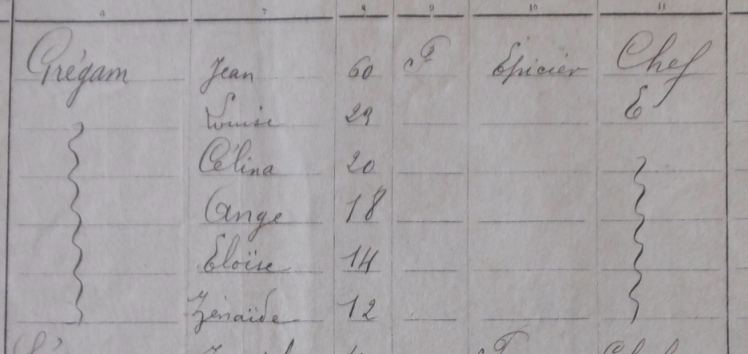 6 7 8 9 10 11
Grégam Jean 60 F Épicier Chef
Louise 29 E
Célina 20
Ange 18
Eloïse 14
Zénaïde 12